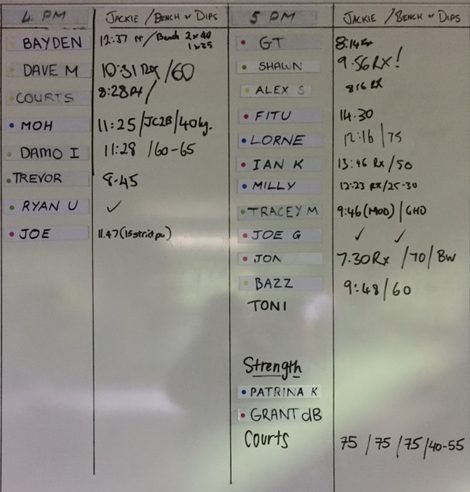 4 PM JACKIE / BENCH & DIPS
BAYDEN 12:37 / Bench 2x40
1x35
DAVE M 10:31 Rx / 60
COURTS 8:28 Rx /
MOH 11:25 / JC2B / 40kg.
DAMO I 11:28 / 60-65
TREVOR 8.45
RYAN U ✓
JOE 11.47 (15 strict pu)
5 PM JACKIE / BENCH & DIPS
GT 8:14
SHAWN 9:56 RX!
ALEX S 8:16 RX
FITU 14.30
LORNE 12:16 / 75
IAN K 13:46 Rx / 50
MILLY 12:23 RX / 25-30
TRACEY M 9:46 (MOD) / GHD
JOE G ✓ ✓
JON 7.30 Rx / 70 / BW
BAZZ 9:48 / 60
TONI
Strength
PATRINA K
GRANT dB
Courts 75 / 75 / 75 / 40-55